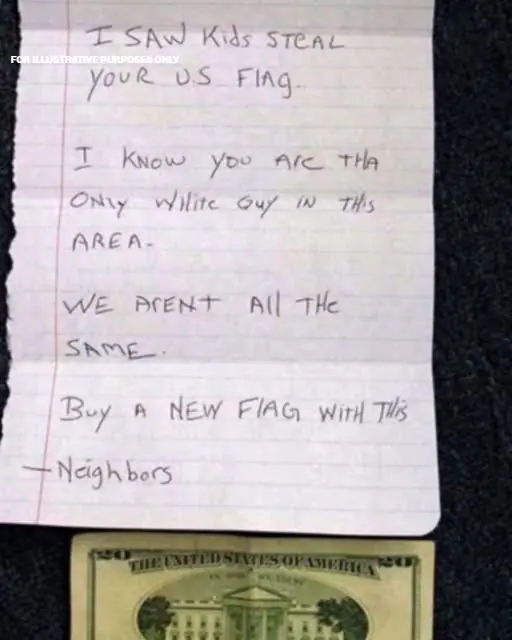 I SAW Kids STEAL
FOR ILLUSTRATIVE PURPOSES ONLY
YOUR U.S FlAg.
I KNOW YOU ArE THA
ONly WHite Guy IN THis
AREA-
WE ArENt All THe
SAME.
Buy A NEW FlAG WitH THis
—Neighbors
20 THE UNITED STATES OF AMERICA 20
IN GOD WE TRUST